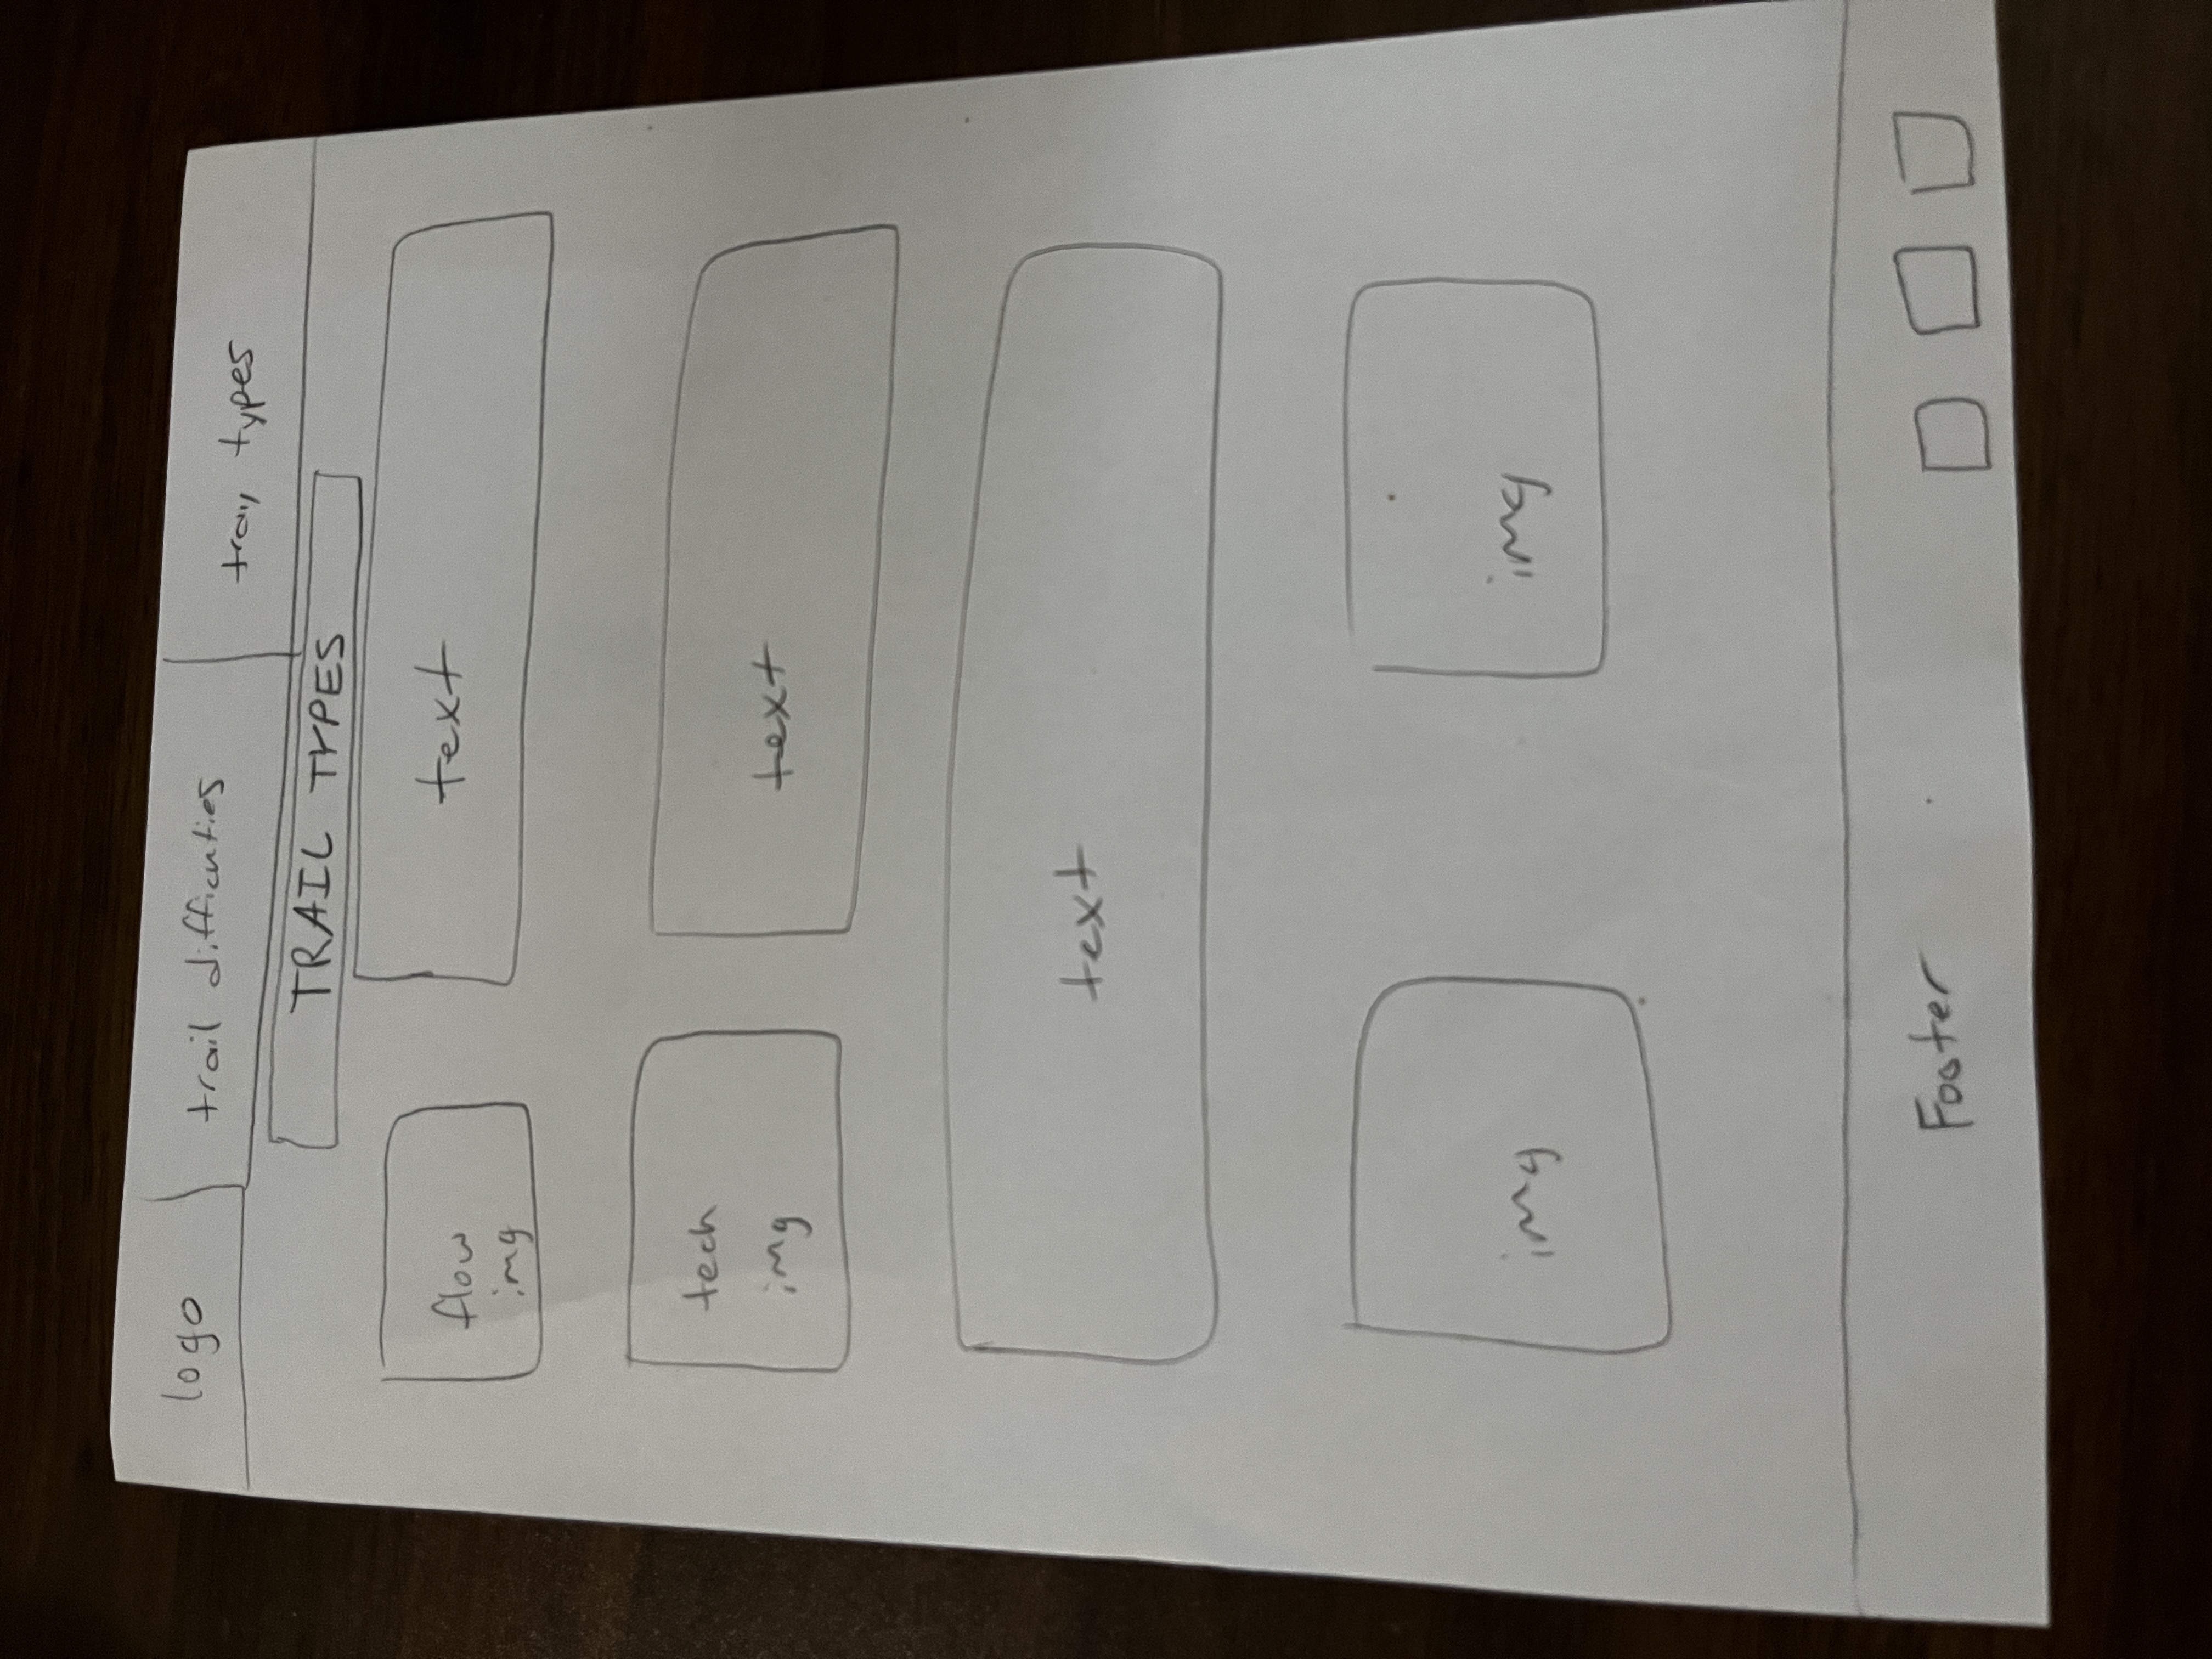 logo
trail difficulties
trail types
TRAIL TYPES
flow
img
text
tech
img
text
text
img
img
Footer